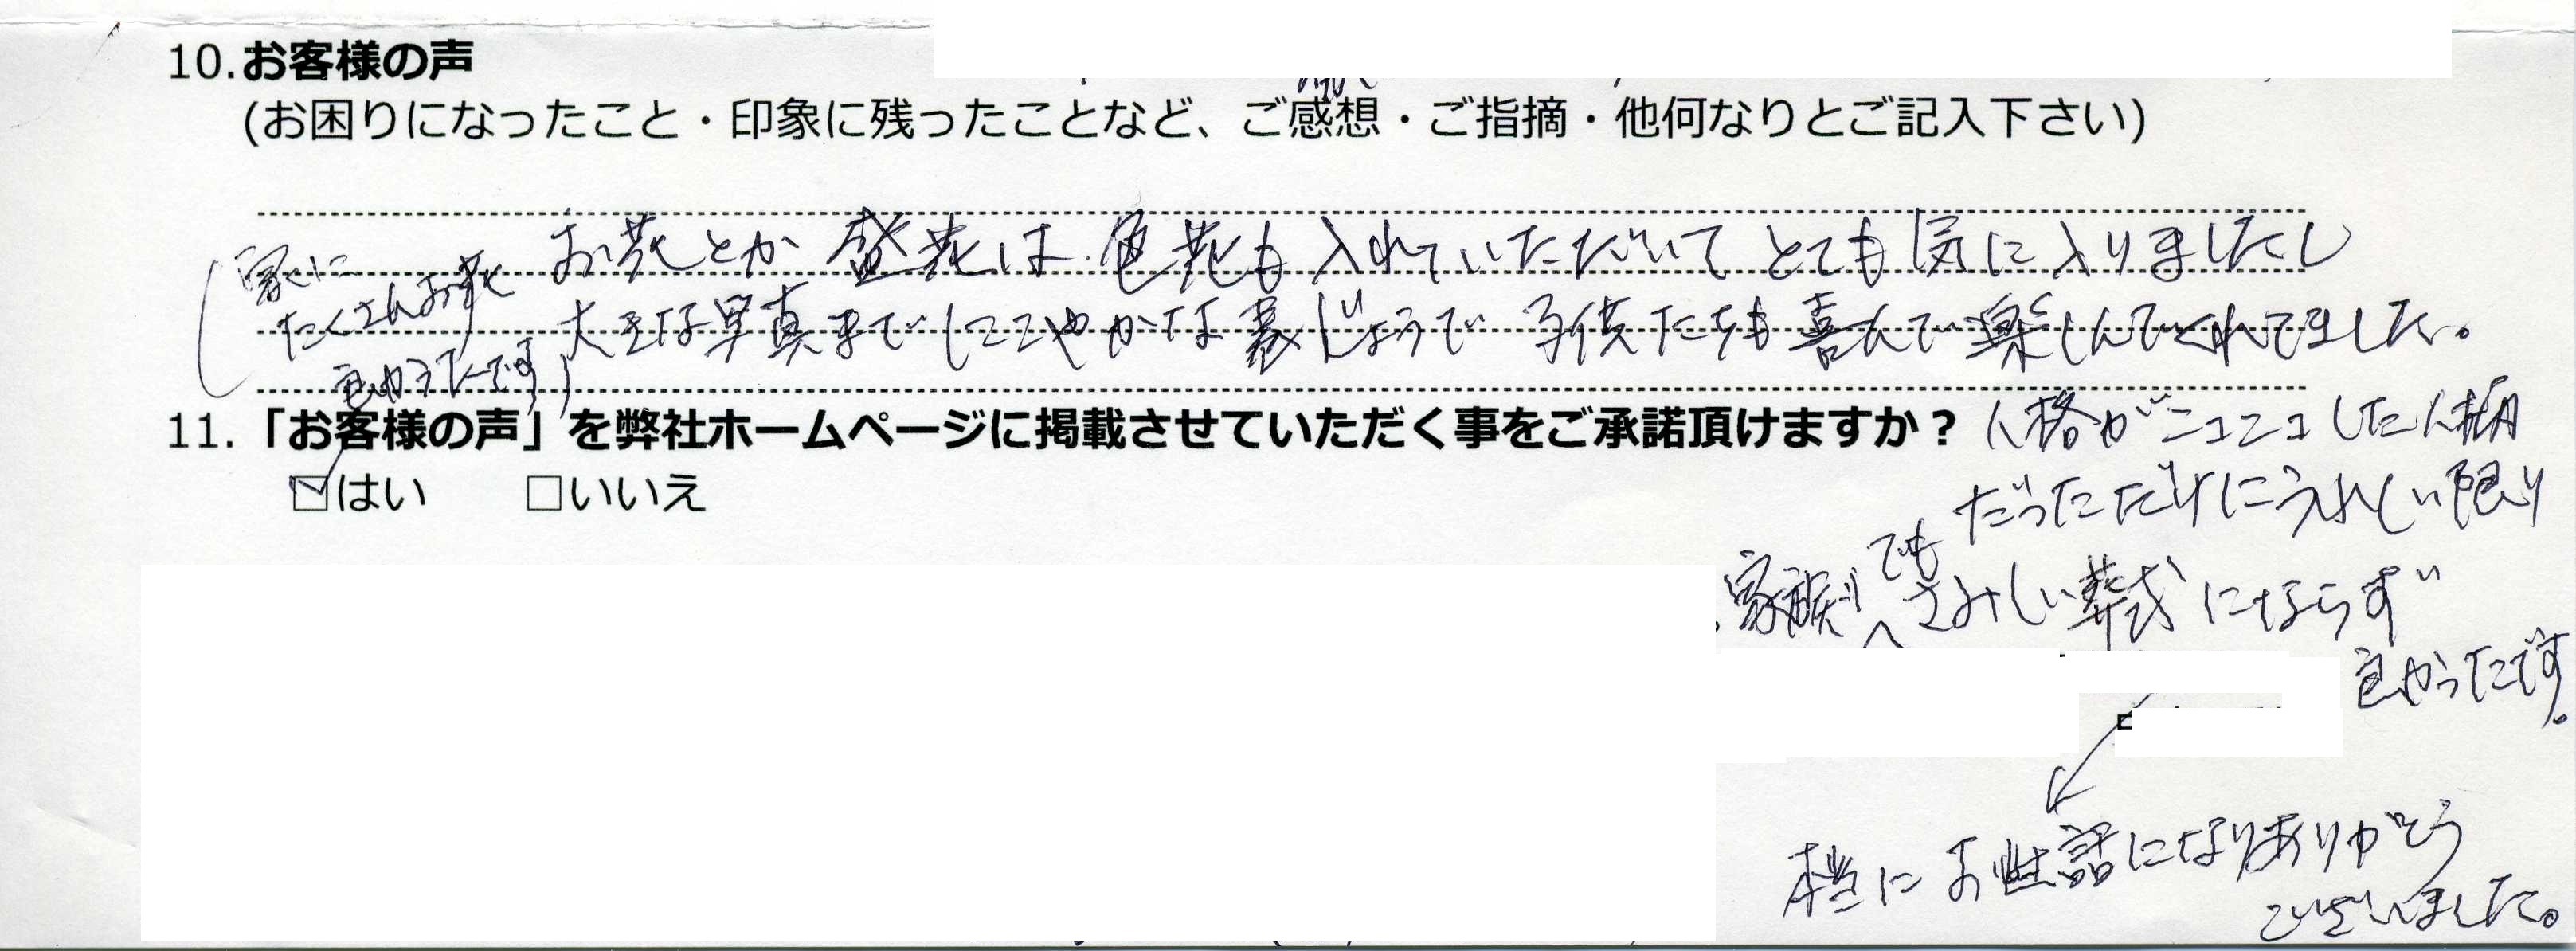 10.お客様の声
(お困りになったこと・印象に残ったことなど、ご感想・ご指摘・他何なりとご記入下さい)
お花とか 盛花は 色花も 入れていただいて とても気に入りましたし
大きな写真まで にこやかな 表じょうで 子供たちも 喜んで 楽しんでくれてました。
(家に
たくさんお花
良かったです)
11.「お客様の声」を弊社ホームページに掲載させていただく事をご承諾頂けますか？
☑はい □いいえ
人格がニコニコした人柄
だっただけにうれしい限り
家族 でも さみしい葬式にならず
良かったです。
本当に お性話になりありがとう
ございました。